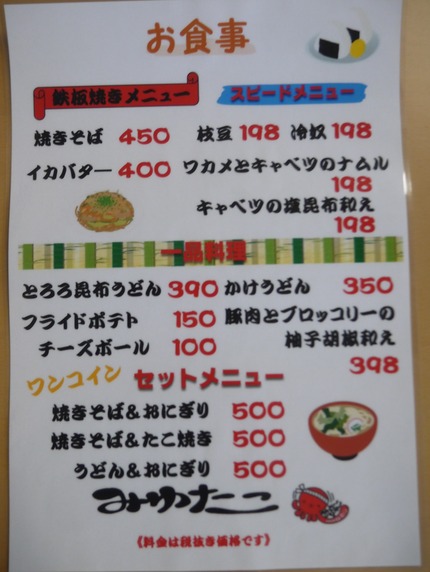 お食事
鉄板焼きメニュー
スピードメニュー
焼きそば 450
枝豆 198 冷奴 198
イカバター 400
ワカメとキャベツのナムル
198
キャベツの塩昆布和え
198
一品料理
とろろ昆布うどん 390
かけうどん 350
フライドポテト 150
豚肉とブロッコリーの
柚子胡椒和え
398
チーズボール 100
ワンコイン セットメニュー
焼きそば&おにぎり 500
焼きそば&たこ焼き 500
うどん&おにぎり 500
みゆたこ
《料金は税抜き価格です》